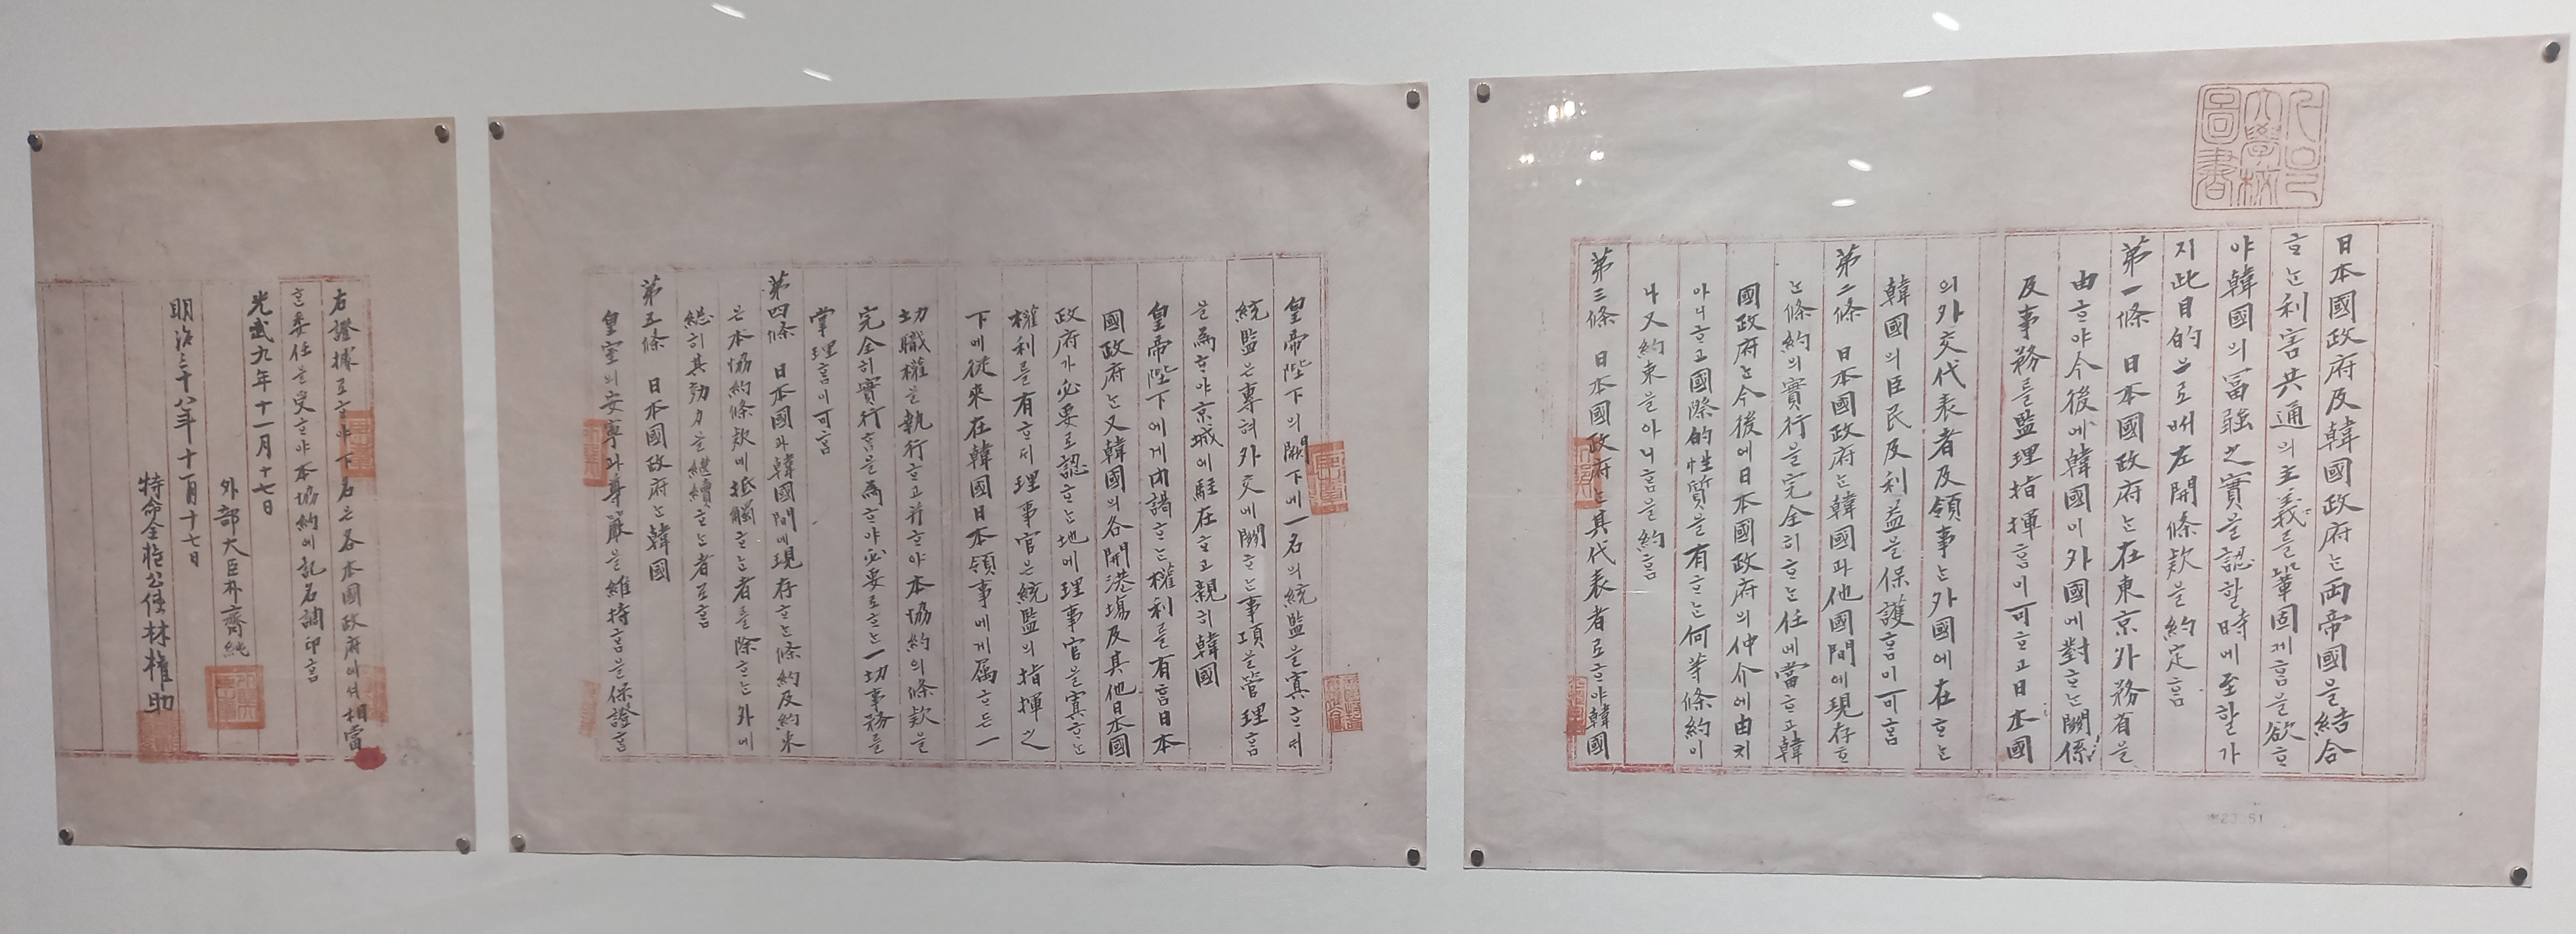 日本國政府及韓國政府는兩帝國을結合
ᄒᆞ는利害共通의主義를鞏固케홈을欲ᄒᆞ
야韓國의冨强之實을認할時에至할가
지此目的으로ᄡᅥ左開條款을約定홈
第一條 日本國政府는在東京外務省을
由ᄒᆞ야今後에韓國이外國에對ᄒᆞ는關係
及事務를監理指揮홈이可ᄒᆞ고日本國
의外交代表者及領事는外國에在ᄒᆞ는
韓國의臣民及利益을保護홈이可홈
第二條 日本國政府는韓國과他國間에現存ᄒᆞ
는條約의實行을完全히ᄒᆞ는任에當ᄒᆞ고韓
國政府는今後에日本國政府의仲介에由치
아니ᄒᆞ고國際的性質을有ᄒᆞ는何等條約이
나又約束을아니홈을約홈
第三條 日本國政府는其代表者로ᄒᆞ야韓國
皇帝陛下의闕下에一名의統監을寘ᄒᆞ되
統監은專혀外交에關ᄒᆞ는事項을管理홈
을爲ᄒᆞ야京城에駐在ᄒᆞ고親히韓國
皇帝陛下에게內謁ᄒᆞ는權利를有홈日本
國政府는又韓國의各開港場及其他日本國
政府가必要로認ᄒᆞ는地에理事官을寘ᄒᆞ는
權利를有ᄒᆞ되理事官은統監의指揮之
下에從來在韓國日本領事에게屬ᄒᆞ든一
切職權을執行ᄒᆞ고幷ᄒᆞ야本協約의條款을
完全히實行홈을爲ᄒᆞ야必要로ᄒᆞ는一切事務를
掌理홈이可홈
第四條 日本國과韓國間에現存ᄒᆞ는條約及約束
은本協約條款에抵觸ᄒᆞ는者를除ᄒᆞ는外에
總히其効力을繼續ᄒᆞ는者로홈
第五條 日本國政府는韓國
皇室의安寧과尊嚴을維持홈을保證홈
右證據로ᄒᆞ야下名은各本國政府에셔相當
ᄒᆞᆫ委任을受ᄒᆞ야本協約에記名調印홈
光武九年十一月十七日
外部大臣朴齊純
明治三十八年十一月十七日
特命全權公使林權助